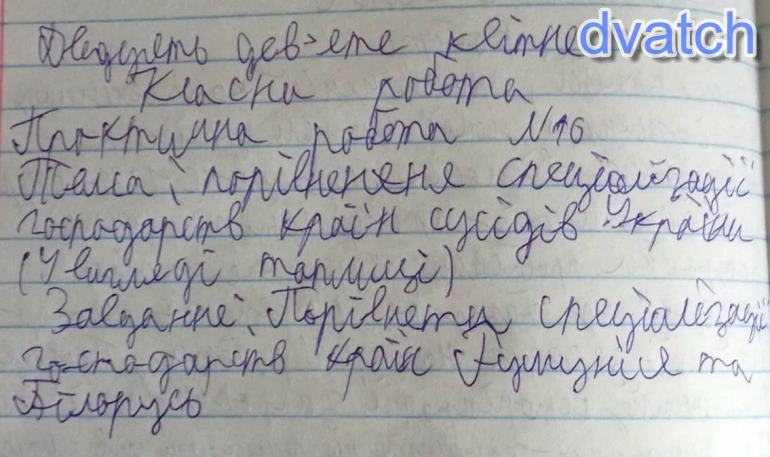 Двадцять дев'яте квітне
dvatch
Класна робота
Практична робота №16
Тема: порівнененя спеціалізації
господарств країн сусідів України
(У вигляді таблиці)
Завданне: Порівнети спеціалізації
господарств країн Румунія та
Білорусь